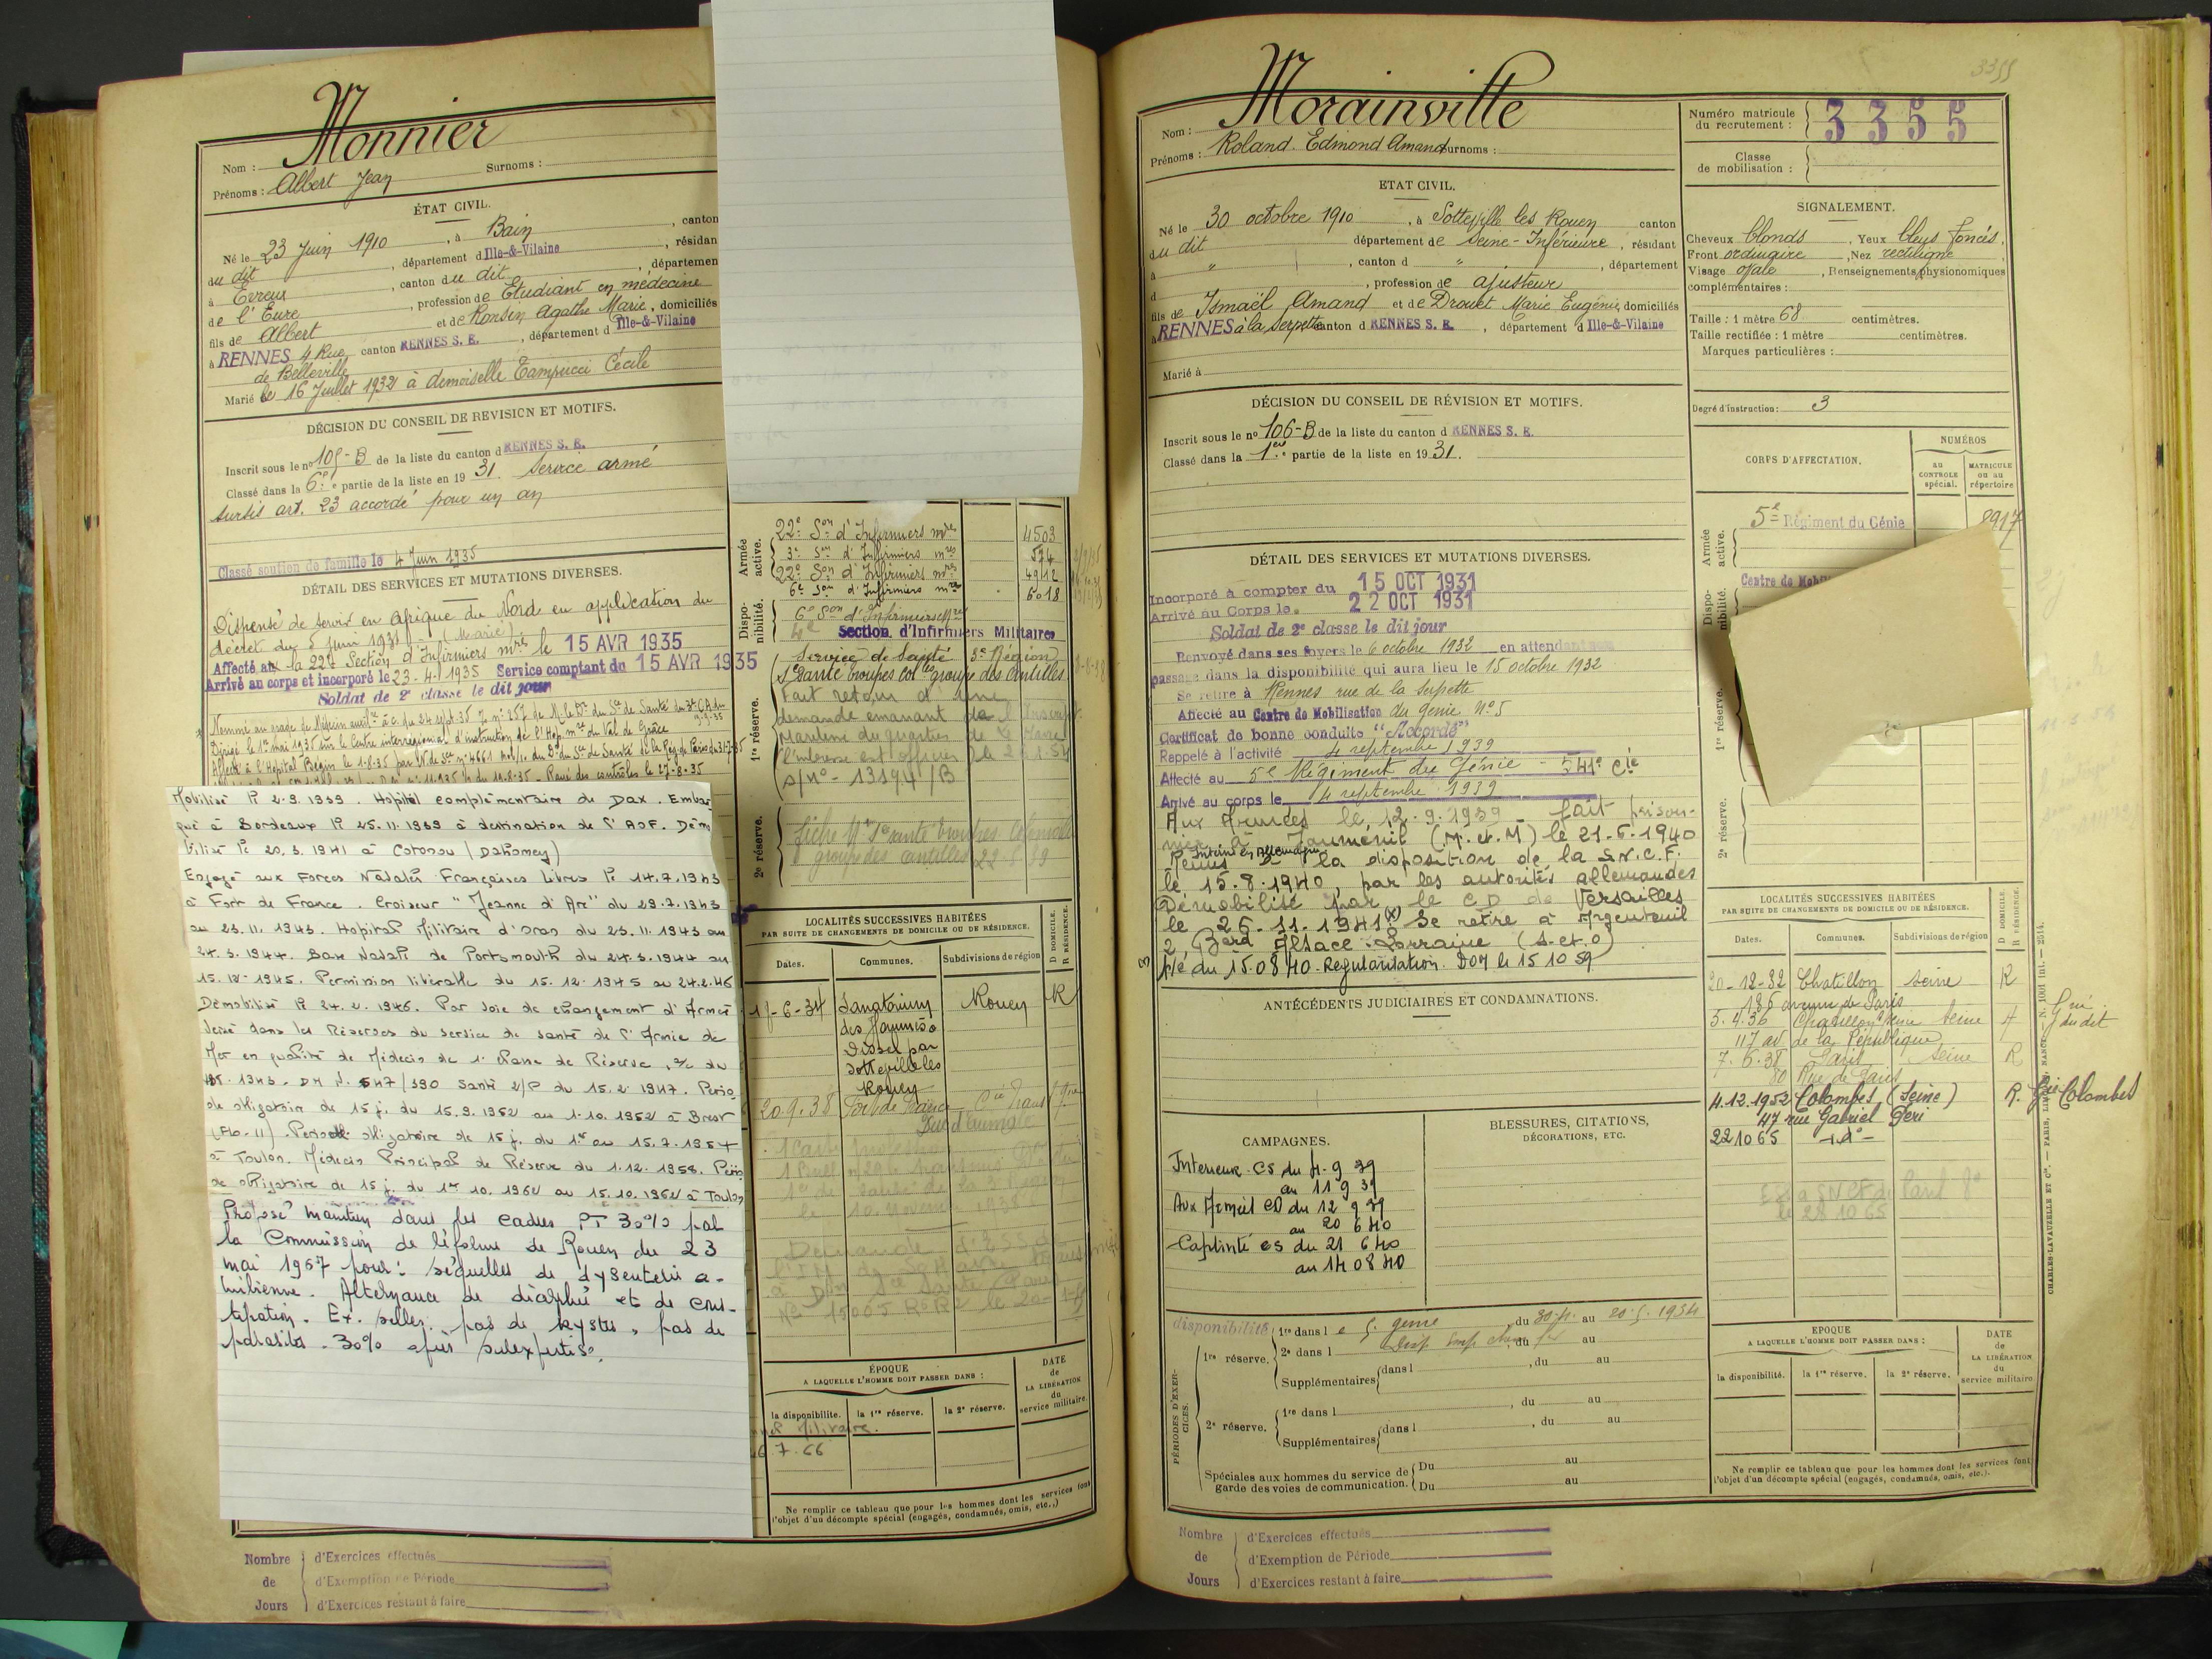 Monnier
Nom :
Surnoms :
Prénoms : Albert Jean
ÉTAT CIVIL.
Né le 23 Juin 1910, à Bain, canton
du dit, département d Ille-&-Vilaine, résidan
à Evreux, canton du dit, départemen
de l'Eure, profession de Etudiant en médecine
fils de Albert et de Ronsin Agathe Marie, domiciliés
à RENNES 4 Rue canton RENNES S. E., département d Ille-&-Vilaine
de Belleville
Marié le 16 Juillet 1932 à demoiselle Campucci Cécile
DÉCISION DU CONSEIL DE REVISION ET MOTIFS.
Inscrit sous le no 105-B de la liste du canton d RENNES S. E.
Classé dans la 6e partie de la liste en 19 31. Service armé
sursis art. 23 accordé pour un an
Classé soutien de famille le 4 Juin 1935
DÉTAIL DES SERVICES ET MUTATIONS DIVERSES.
Dispensé de servir en Afrique du Nord en application du
décret du 5 Juin 1931 (Marié)
Affecté au la 22e Section d'Infirmiers mres le 15 AVR 1935
Arrivé au corps et incorporé le 23-4-1935 Service comptant du 15 AVR 1935
Soldat de 2e classe le dit jour
Dirigé le 1er Mai 1935 sur le Centre interrégional d'instruction de l'Hop. mre du Val de Grâce
Mobilisé le 2.9.1939. Hôpital complémentaire de Dax. Embar
qué à Bordeaux le 25.11.1939 à destination de l'AOF. Démo
bilisé le 20.3.1941 à Cotonou (Dahomey)
Engagé aux Forces Navales Françaises Libres le 14.7.1943
à Fort de France. Croiseur "Jeanne d'Arc" du 29.7.1943
au 23.11.1943. Hopital Militaire d'Oran du 23.11.1943 au
24.3.1944. Base Navale de Portsmouth du 24.3.1944 au
15.12.1945. Permission libérable du 15.12.1945 au 24.2.46
Démobilisé le 24.2.1946. Par voie de changement d'Armée
versé dans les Réserves du service de santé de l'Armée de
Mer en qualité de Médecin de 1e Classe de Réserve, a/c du
1943. DM N. 547/390 Santé 2/P du 15.2.1947. Perio
de obligatoire de 15 j. du 15.9.1952 au 1.10.1952 à Brest
Période obligatoire de 15 j. du 1er au 15.7.1957
à Toulon. Médecin Principal de Réserve du 1.12.1958. Perio
de obligatoire de 15 j. du 1er 10.1962 au 15.10.1962 à Toulon
Proposé maintien dans les cadres PT 30% par
la Commission de réforme de Rouen du 23
mai 1967 pour : séquelles de dysenterie a-
mibienne. Alternance de diarrhée et de cons-
tipation. Ex. selles : pas de kystes, pas de
parasites. 30% après surexpertise.
Armée active.
22e Son d'Infirmiers mres 4503
3e Son d'Infirmiers mres 574
22e Son d'Infirmiers mres 4912
6e Son d'Infirmiers mres 6018
Disponibilité.
6e Son d'Infirmiers Mres
4e Section d'Infirmiers Militaires
1re réserve.
Service de Santé 3e Région
Santé troupes coles groupe des Antilles
Fait retour d'une
demande émanant de l'Inscript.
Maritime du quartier
s/no 13194/B
2e réserve.
groupe des Antilles
LOCALITÉS SUCCESSIVES HABITÉES
PAR SUITE DE CHANGEMENTS DE DOMICILE OU DE RÉSIDENCE.
D DOMICILE.
R RÉSIDENCE.
Dates.
Communes.
Subdivisions de région
-6-34 Sanatorium Rouen R
Oissel par
Sotteville les
Rouen
20.9.38 Fort de France
ÉPOQUE
A LAQUELLE L'HOMME DOIT PASSER DANS :
DATE
de
LA LIBÉRATION
du
service militaire.
la disponibilité.
la 1re réserve.
la 2e réserve.
7.66
Ne remplir ce tableau que pour les hommes dont les services font
l'objet d'un décompte spécial (engagés, condamnés, omis, etc.,)
Nombre de Jours
d'Exercices effectués
d'Exemption de Période
d'Exercices restant à faire
3355
Morainville
Nom :
Prénoms : Roland Edmond Amand Surnoms :
Numéro matricule
du recrutement : 3355
Classe
de mobilisation :
ETAT CIVIL.
Né le 30 octobre 1910, à Sotteville les Rouen canton
du dit département de Seine-Inférieure, résidant
à ", canton d ", département
d, profession de ajusteur
fils de Ismaël Amand et de Drouet Marie Eugénie, domiciliés
à RENNES à la Serpette canton d RENNES S. E., département d Ille-&-Vilaine
Marié à
SIGNALEMENT.
Cheveux blonds, Yeux bleus foncés,
Front ordinaire, Nez rectiligne
Visage ovale, Renseignements physionomiques
complémentaires :
Taille : 1 mètre 68 centimètres.
Taille rectifiée : 1 mètre centimètres.
Marques particulières :
Degré d'instruction : 3
DÉCISION DU CONSEIL DE RÉVISION ET MOTIFS.
Inscrit sous le no 106-B de la liste du canton d RENNES S. E.
Classé dans la 1ere partie de la liste en 19 31.
CORPS D'AFFECTATION.
NUMÉROS
au
CONTROLE
spécial.
MATRICULE
ou au
répertoire
Armée active.
5e Régiment du Génie 8917
Disponibilité.
Centre de Mobil
1re réserve.
2e réserve.
DÉTAIL DES SERVICES ET MUTATIONS DIVERSES.
Incorporé à compter du 15 OCT 1931
Arrivé au Corps le 22 OCT 1931
Soldat de 2e classe le dit jour
Renvoyé dans ses foyers le 6 octobre 1932 en attendant son
passage dans la disponibilité qui aura lieu le 15 octobre 1932
Se retire à Rennes rue de la Serpette
Affecté au Centre de Mobilisation du Génie No 5
Certificat de bonne conduite "Accordé"
Rappelé à l'activité 4 septembre 1939
Affecté au 5e Régiment du Génie - 541e Cie
Arrivé au corps le 4 septembre 1939
Aux Armées le 12.9.1939 - fait prison-
nier à Jauménil (M. et. M) le 21.6.1940
Interné en Allemagne
Remis à la disposition de la S.N.C.F.
le 15.8.1940, par les autorités allemandes
Démobilisé par le CD de Versailles
le 26.11.1941 (x) Se retire à Argenteuil
2, Bard Alsace-Lorraine (S.et.O)
du 15.08 40. Régularisation. DOM le 15 10 59
ANTÉCÉDENTS JUDICIAIRES ET CONDAMNATIONS.
LOCALITÉS SUCCESSIVES HABITÉES
PAR SUITE DE CHANGEMENTS DE DOMICILE OU DE RÉSIDENCE.
D DOMICILE.
R RÉSIDENCE.
Dates.
Communes.
Subdivisions de région
20-12-32 Chatillon Seine R
186 avenue de Paris
5.4.36 Chatillon s/ Seine Seine
117 av de la République
7.6.38 Paris Seine R
80 Rue de Paris
4.12.1952 Colombes (Seine) R. Grie Colombes
47 rue Gabriel Péri
22 10 65 - d° -
CAMPAGNES.
Interieur. CS du 4-9 39
au 11 9 39
Aux Armées CD du 12 9 39
au 20 6 40
Captivité CS du 21 6 40
au 14 08 40
BLESSURES, CITATIONS,
DÉCORATIONS, ETC.
PÉRIODES D'EXERCICES.
disponibilité
1re réserve.
1re dans l e 5. génie du 30-4. au 20-5.1934
2e dans l, du au
Supplémentaires dans l, du au
2e réserve.
1re dans l, du au
Supplémentaires dans l, du au
Spéciales aux hommes du service de
garde des voies de communication.
Du au
Du au
EPOQUE
A LAQUELLE L'HOMME DOIT PASSER DANS :
DATE
de
LA LIBÉRATION
du
service militaire
la disponibilité.
la 1re réserve.
la 2e réserve.
Ne remplir ce tableau que pour les hommes dont les services font
l'objet d'un décompte spécial (engagés, condamnés, omis, etc.).
CHARLES-LAVAUZELLE ET Cie. — PARIS, LIMOGES, NANCY
Nombre de Jours
d'Exercices effectués
d'Exemption de Période
d'Exercices restant à faire